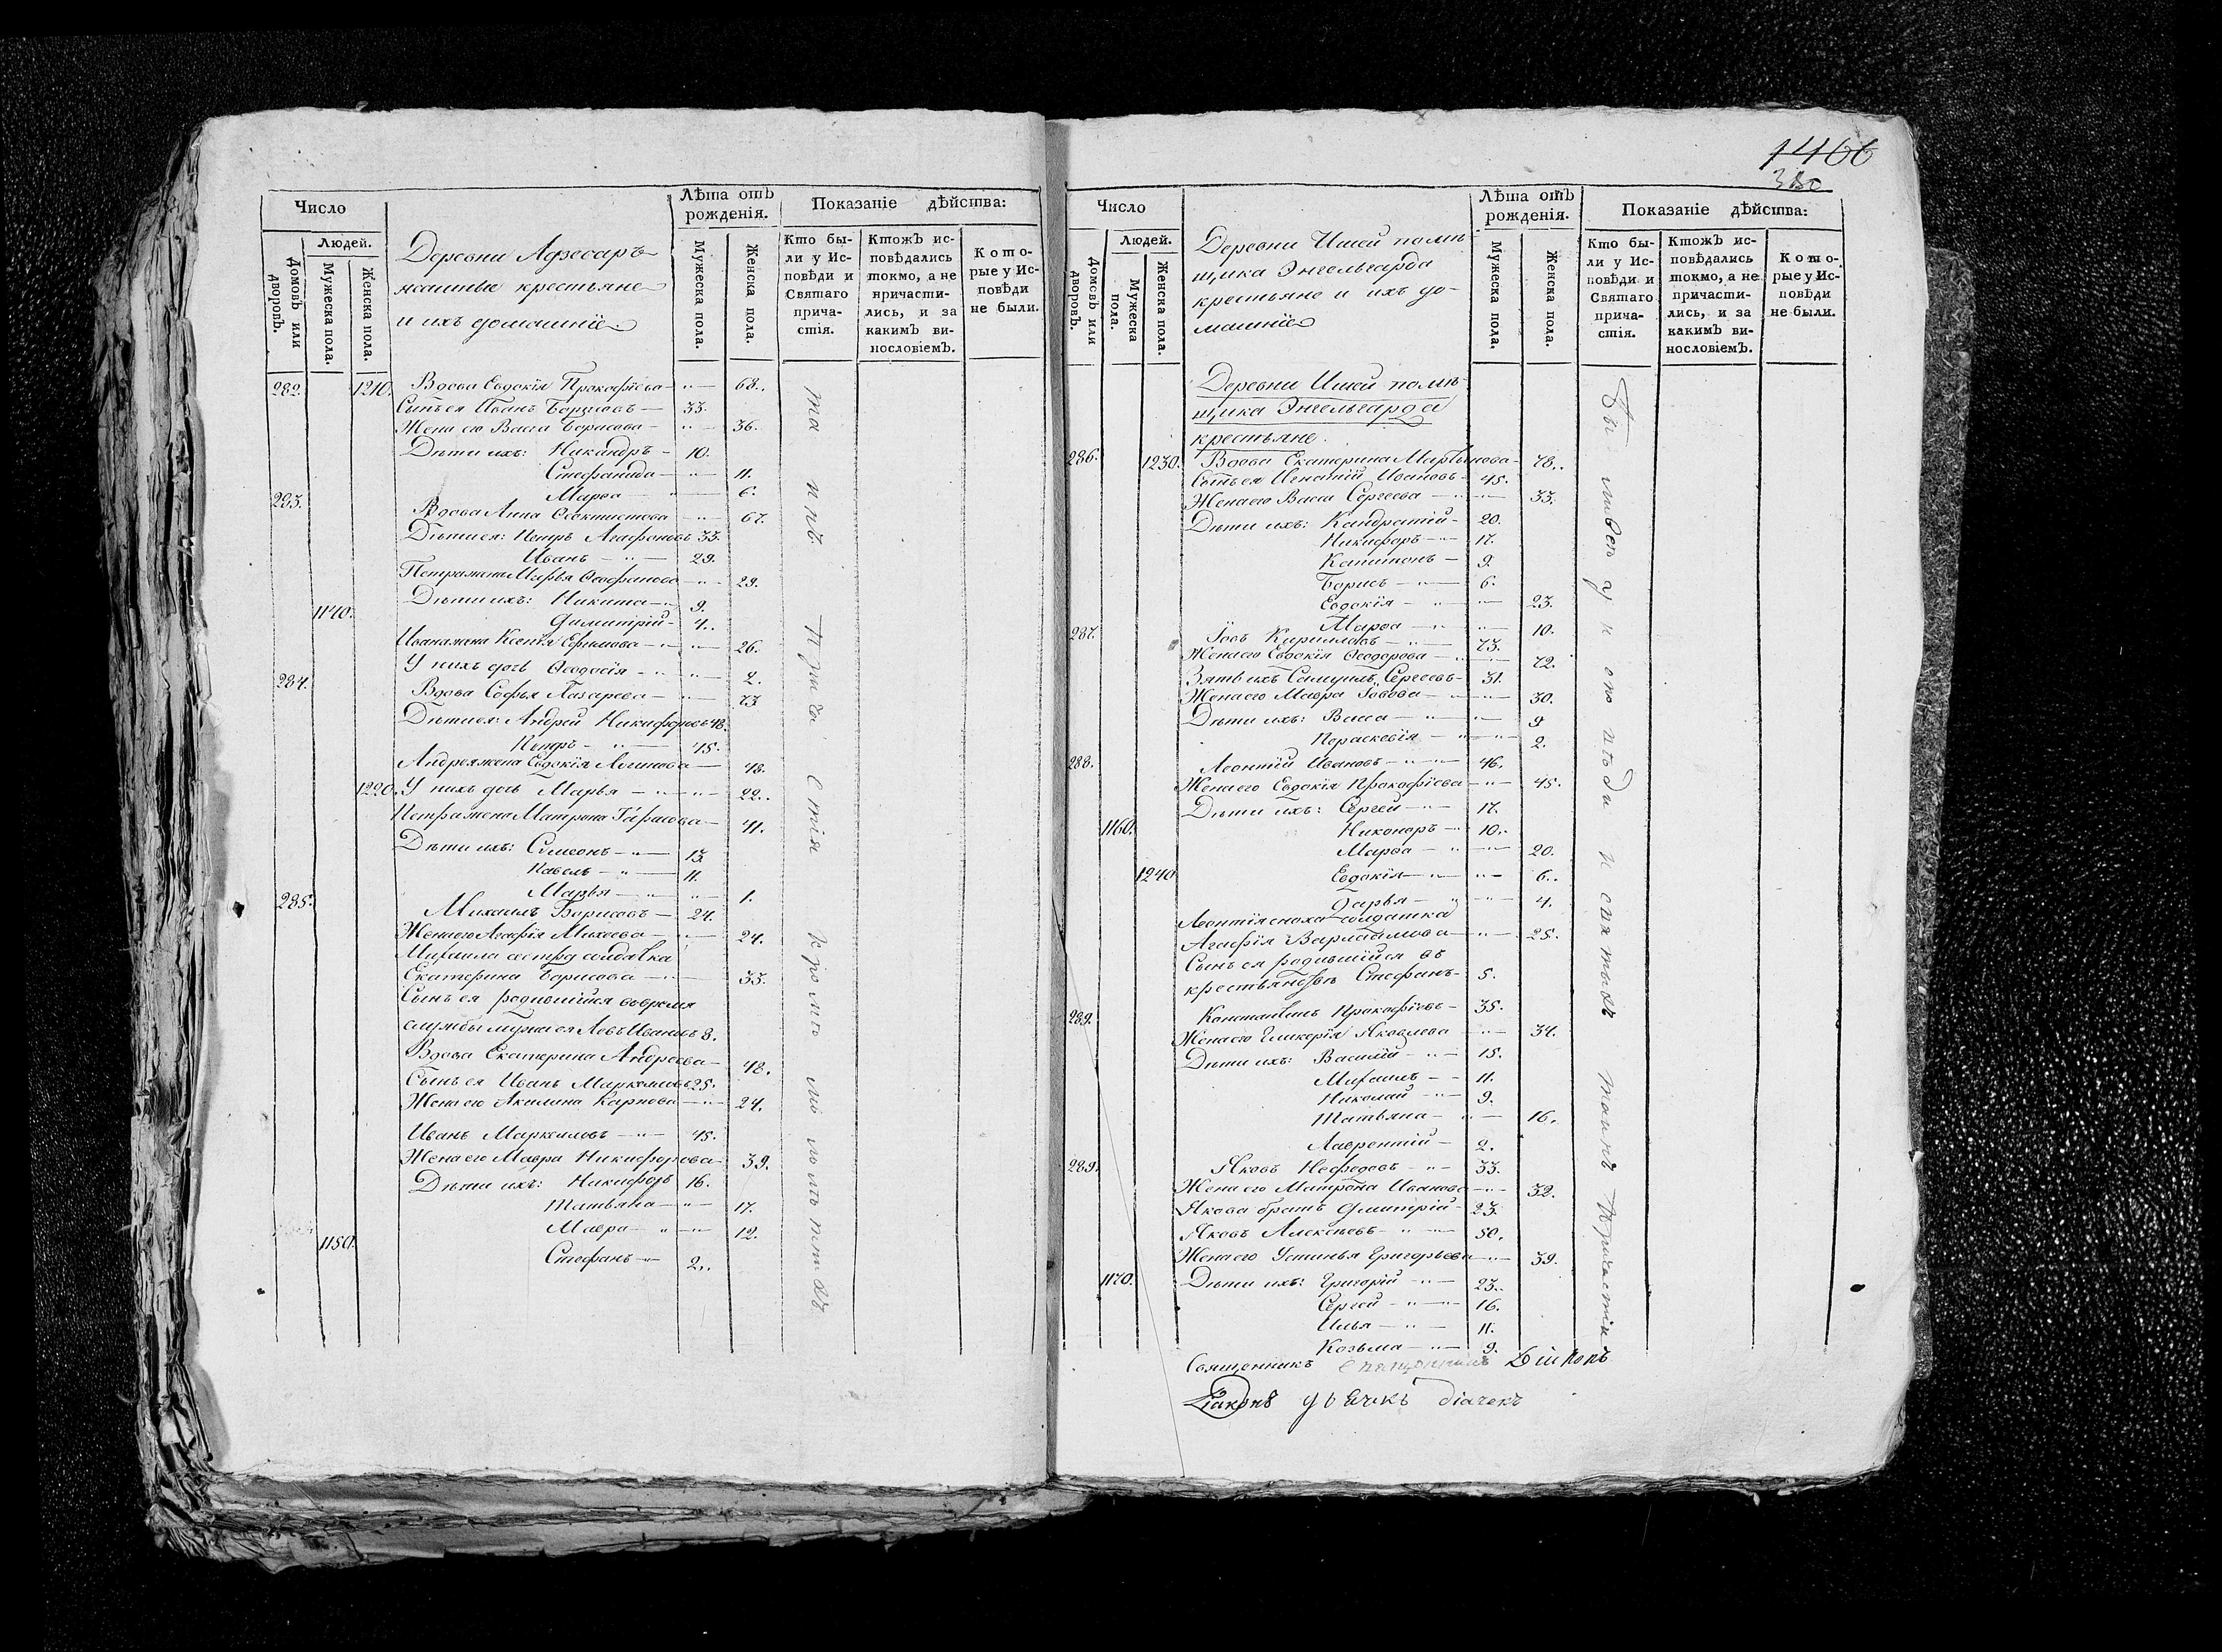 Число
Лѣта отЪ рожденія.
Показаніе дѣйства:
ДомовЪ или дворовЪ.
Людей.
Мужеска пола.
Женска пола.
Деревни
крестьяне
и ихъ домашніе
Мужеска пола.
Женска пола.
Кто бы-
ли у Ис-
повѣди и
Святаго
прича-
стія.
КтожЪ ис-
повѣдались
токмо, а не
причасти-
лись, и за
какимЪ ви-
нословіемЪ.
Кото-
рые у Ис-
повѣди
не были.
282. 1210. Вдова Евдокія Прокофіева 68.
Сынъ ея Иванъ Борисовъ 33.
Жена его Васса Борисова 36.
Дѣти ихъ: Никандръ 10.
Стефанида 11.
Марѳа 6.
283. Вдова Анна Ѳеоктистова 67.
Дѣти ея: Петръ Агафоновъ 33.
Иванъ 29.
Петра жена Марья 29.
Дѣти ихъ: Никита 9.
1140. Димитрій 4.
Ивана жена Ксенія Ефимова 26.
У нихъ дочь Ѳеодосія 2.
284. Вдова Софья Лазарева 73
Дѣти ея: Андрей Никифоровъ 48.
Петръ 45.
Андрея жена Евдокія 48.
1220. У нихъ дочь Марья 22.
Петра жена Матрона Тарасова 41.
Дѣти ихъ: Симеонъ 13.
Павелъ 11.
Марья 1.
285. Михаилъ Борисовъ 24.
Жена его Агафія Михеева 24.
Михаила сестра солдатка
Екатерина Борисова 33.
Сынъ ея родившійся во время
службы мужа ея Левъ Ивановъ 8.
Вдова Екатерина Андреева 48.
Сынъ ея Иванъ Маркеловъ 25.
Жена его Акилина Карпова 24.
Иванъ Маркелловъ 45.
Жена его Мавра Никифорова 39.
Дѣти ихъ: Никифоръ 16.
Татьяна 17.
Мавра 12.
1150. Стефанъ 2.
кромѣ
1466
380
Число
Лѣта отЪ рожденія.
Показаніе дѣйства:
ДомовЪ или дворовЪ.
Людей.
Мужеска пола.
Женска пола.
Деревни Ишей помѣ-
щика Энгельгарда
крестьяне и ихъ до-
машніе
Мужеска пола.
Женска пола.
Кто бы-
ли у Ис-
повѣди и
Святаго
прича-
стія.
КтожЪ ис-
повѣдались
токмо, а не
причасти-
лись, и за
какимЪ ви-
нословіемЪ.
Кото-
рые у Ис-
повѣди
не были.
Деревни Ишей помѣ-
щика Энгельгарда
крестьяне.
286. 1230. Вдова Екатерина Мартынова 78.
Сынъ ея Игнатій Ивановъ 45.
Жена его Васса Сергеева 33.
Дѣти ихъ: Кандратій 20.
Никифоръ 17.
Капитонъ 9.
Борисъ 6.
Евдокія 23.
Марѳа 10.
287. Іовъ Карилловъ 73.
Жена его Евдокія Ѳеодорова 72.
Зять ихъ Самуилъ Сергеевъ 31.
Жена его Мавра Іовова 30.
Дѣти ихъ: Васса 9
Пораскевія 2.
288. Леонтій Ивановъ 46.
Жена его Евдокія Прокофіева 45.
Дѣти ихъ: Сергей 17.
1160. Никоноръ 10.
Марѳа 20.
1240 Евдокія 6.
Дарья 4.
Леонтія сноха солдатка
Агафія Варлаамова 25.
Сынъ ея родившійся въ
крестьянствѣ Стефанъ 5.
289. Константинъ Прокофіевъ 35.
Жена его Гликерія Яковлева 34.
Дѣти ихъ: Василій 15.
Михаилъ 11.
Николай 9.
Татьяна 16.
Лаврентій 2.
289. Яковъ Нефедовъ 33.
Жена его Матрона Иванова 32.
Якова братъ Димитрій 23.
Яковъ Алексѣевъ 50.
Жена его Устинья Григорьева 39.
1170. Дѣти ихъ: Григорій 23.
Сергей 16.
Илья 11.
Козьма 9.
и святыхъ таинъ причастіи
Священникъ
Діаконъ діячекъ